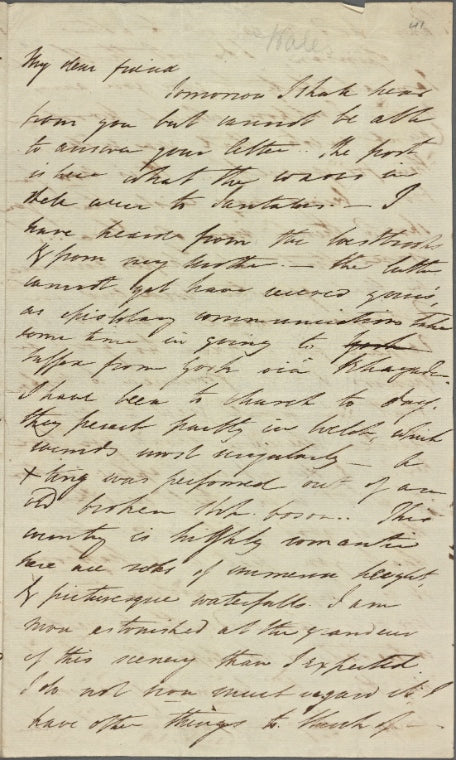 Wales
41
My dear friend
Tomorrow I shall hear
from you but cannot be able
to answer your letter. The post
is here what the waves in
were to Tantalus. — I
have heard from the Westbrooks
& from my mother. — the latter
cannot yet have received yours,
as epistolary communications take
some time in going to york
from York via
I have been to church to day.
they preach partly in Welsh, which
sounds most singularly — a
Xting was performed out of an
old broken slop-bason. This
country is highly romantic
here are rocks of immense height,
& picturesque waterfalls. I am
more astonished at the grandeur
of this scenery than I expected
I do not now much regard it. I
have other things to think of —